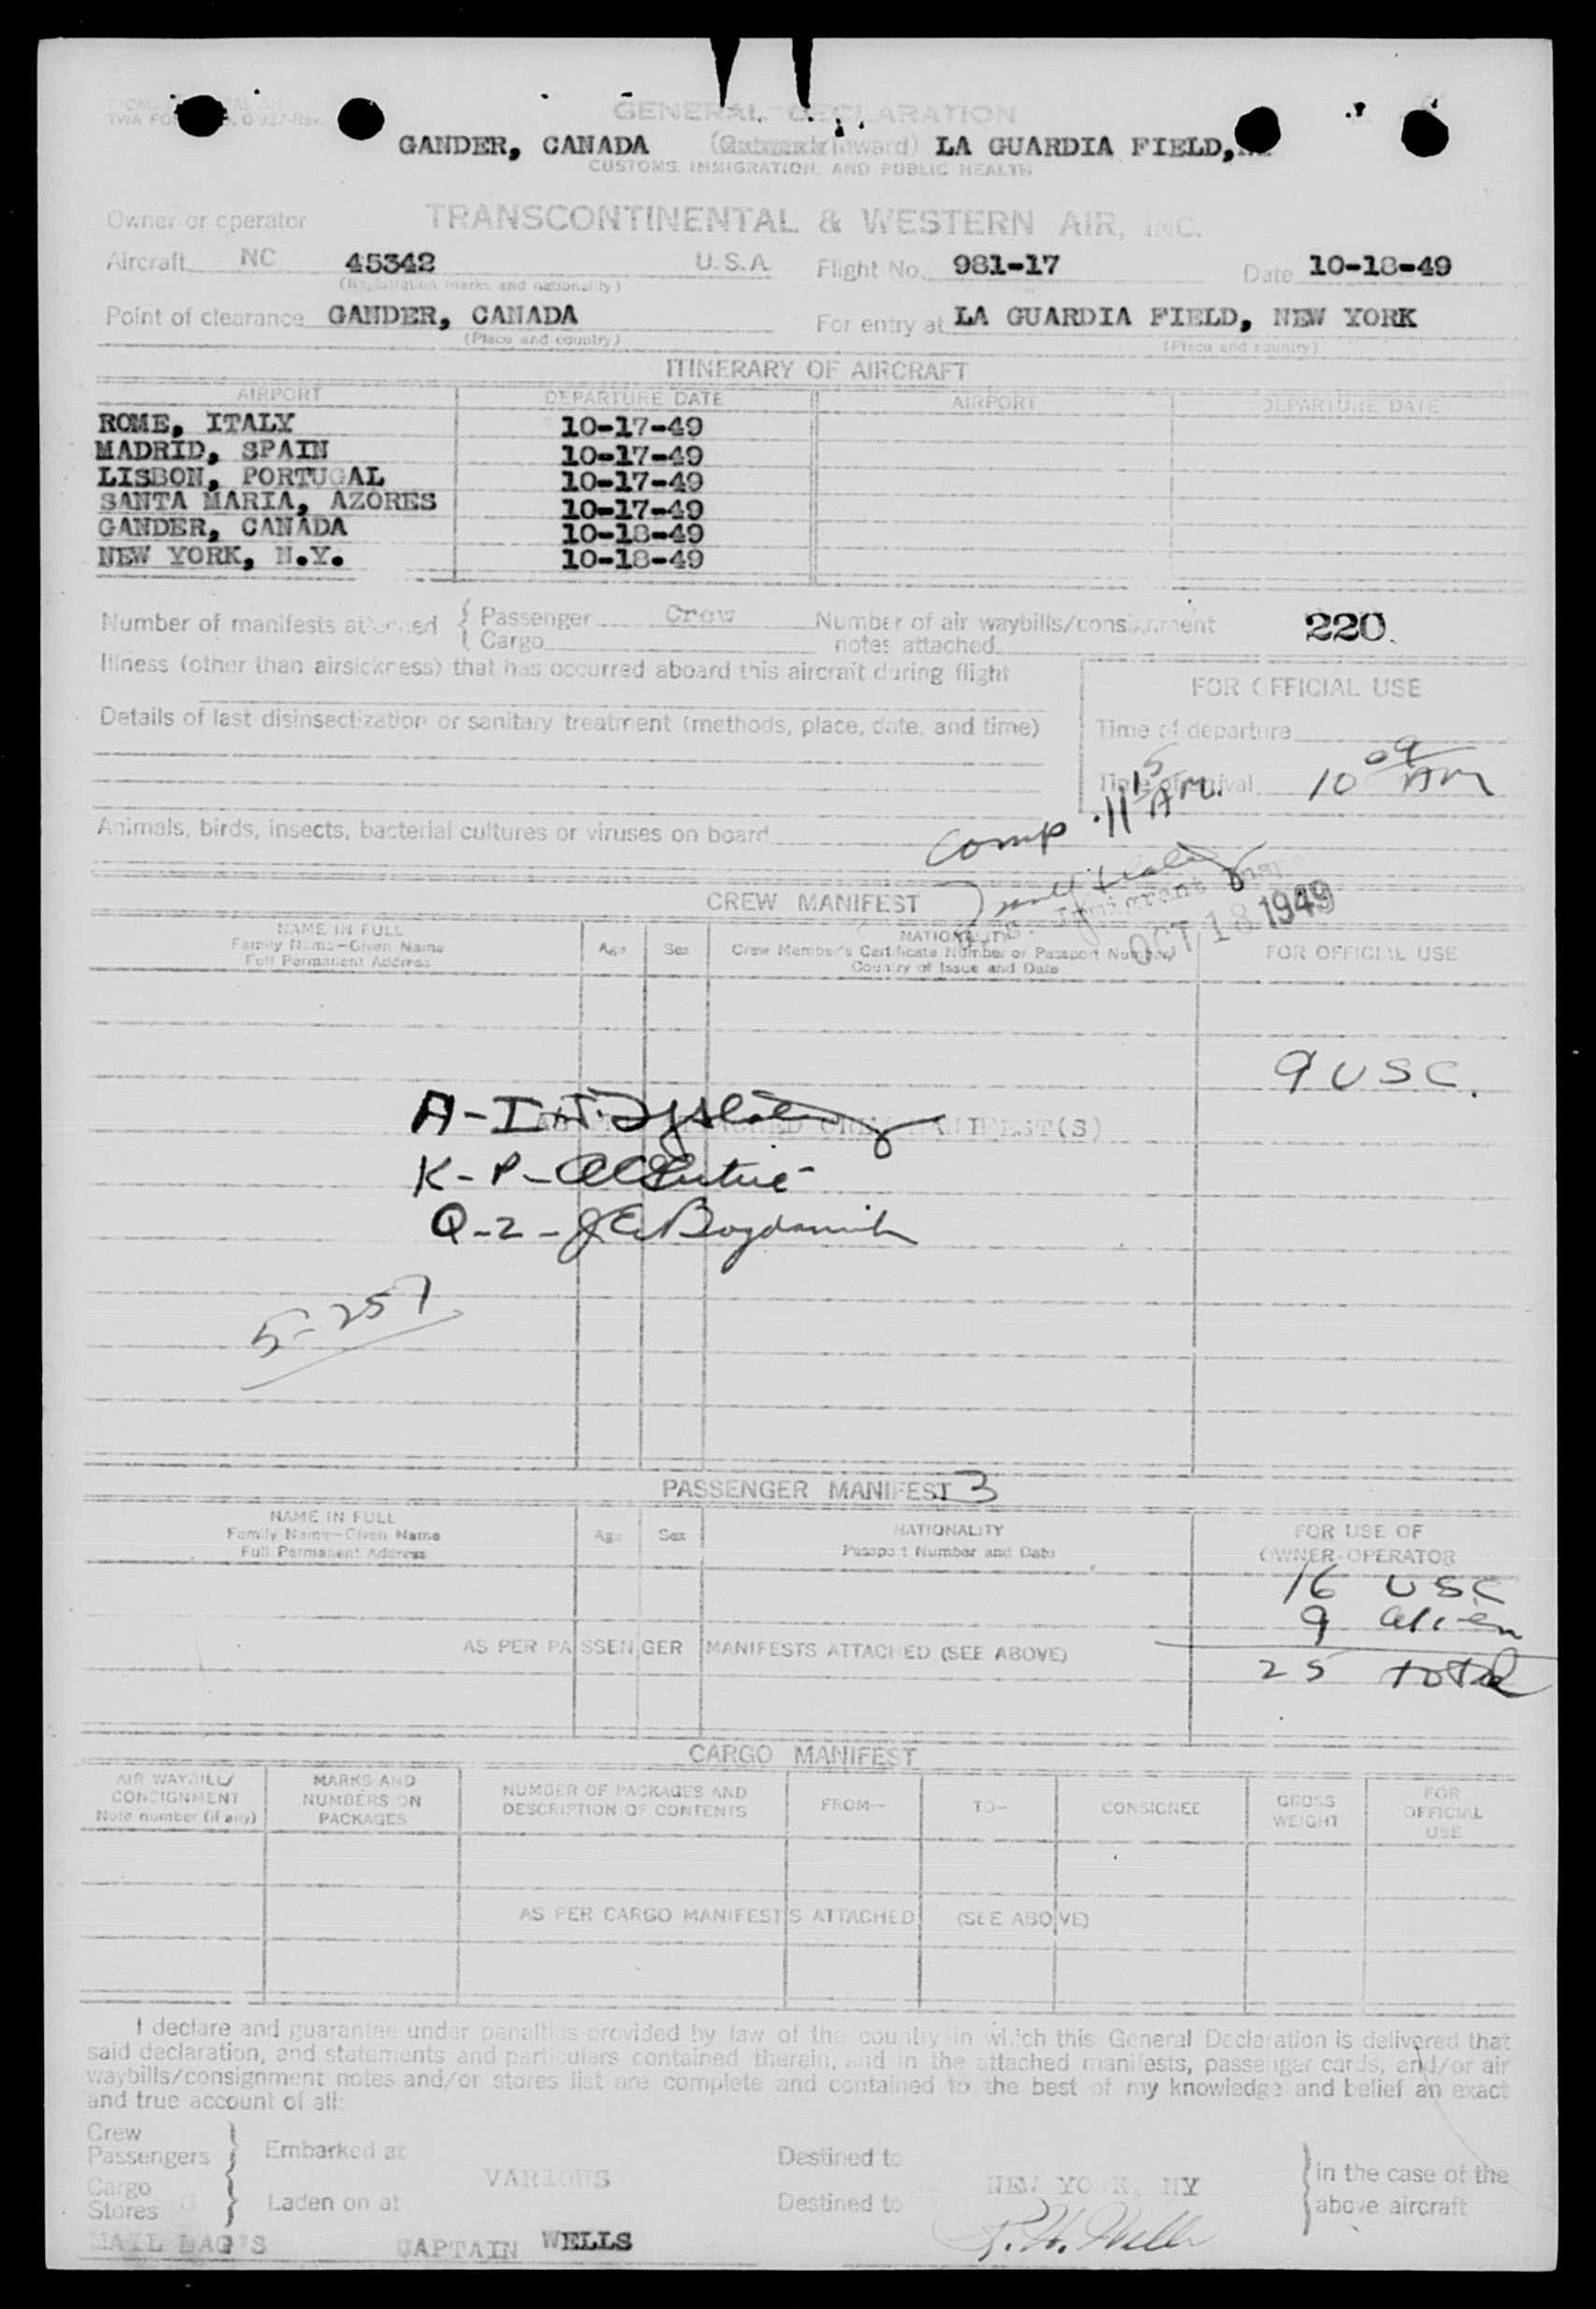 GENERAL DECLARATION
GANDER, CANADA (Outward/Inward) LA GUARDIA FIELD,
CUSTOMS, IMMIGRATION, AND PUBLIC HEALTH
Owner or operator TRANSCONTINENTAL & WESTERN AIR, INC.
Aircraft NC 45342 U.S.A. Flight No. 981-17 Date 10-18-49
(Registration marks and nationality)
Point of clearance GANDER, CANADA For entry at LA GUARDIA FIELD, NEW YORK
(Place and country) (Place and country)
ITINERARY OF AIRCRAFT
AIRPORT DEPARTURE DATE AIRPORT DEPARTURE DATE
ROME, ITALY 10-17-49
MADRID, SPAIN 10-17-49
LISBON, PORTUGAL 10-17-49
SANTA MARIA, AZORES 10-17-49
GANDER, CANADA 10-18-49
NEW YORK, N.Y. 10-18-49
Number of manifests attached { Passenger Crew Number of air waybills/consignment 220.
{ Cargo notes attached
Illness (other than airsickness) that has occurred aboard this aircraft during flight
FOR OFFICIAL USE
Details of last disinsectization or sanitary treatment (methods, place, date, and time)
Time of departure
Time of arrival 10 09 AM
Comp. 11 15 AM.
Animals, birds, insects, bacterial cultures or viruses on board
Immigrant Insp
OCT 18 1949
CREW MANIFEST
NAME IN FULL
Family Name—Given Name
Full Permanent Address
Age Sex
NATIONALITY
Crew Member's Certificate Number or Passport Number
Country of Issue and Date
FOR OFFICIAL USE
9 USC.
A-I
MANIFEST(S)
K-P-
Q-2-
5-257
PASSENGER MANIFEST 3
NAME IN FULL
Family Name—Given Name
Full Permanent Address
Age Sex
NATIONALITY
Passport Number and Date
FOR USE OF
OWNER-OPERATOR
16 USC
9 alien
AS PER PASSENGER MANIFESTS ATTACHED (SEE ABOVE)
25 total
CARGO MANIFEST
AIR WAYBILL/
CONSIGNMENT
Note number (if any)
MARKS AND
NUMBERS ON
PACKAGES
NUMBER OF PACKAGES AND
DESCRIPTION OF CONTENTS
FROM— TO— CONSIGNEE
GROSS
WEIGHT
FOR
OFFICIAL
USE
AS PER CARGO MANIFESTS ATTACHED (SEE ABOVE)
I declare and guarantee under penalties provided by law of the country in which this General Declaration is delivered that
said declaration, and statements and particulars contained therein, and in the attached manifests, passenger cards, and/or air
waybills/consignment notes and/or stores list are complete and contained to the best of my knowledge and belief an exact
and true account of all:
Crew
Passengers } Embarked at Destined to
VARIOUS NEW YORK, NY } in the case of the
Cargo
Stores } Laden on at Destined to above aircraft
MAIL BAG'S CAPTAIN WELLS R. H. Wells